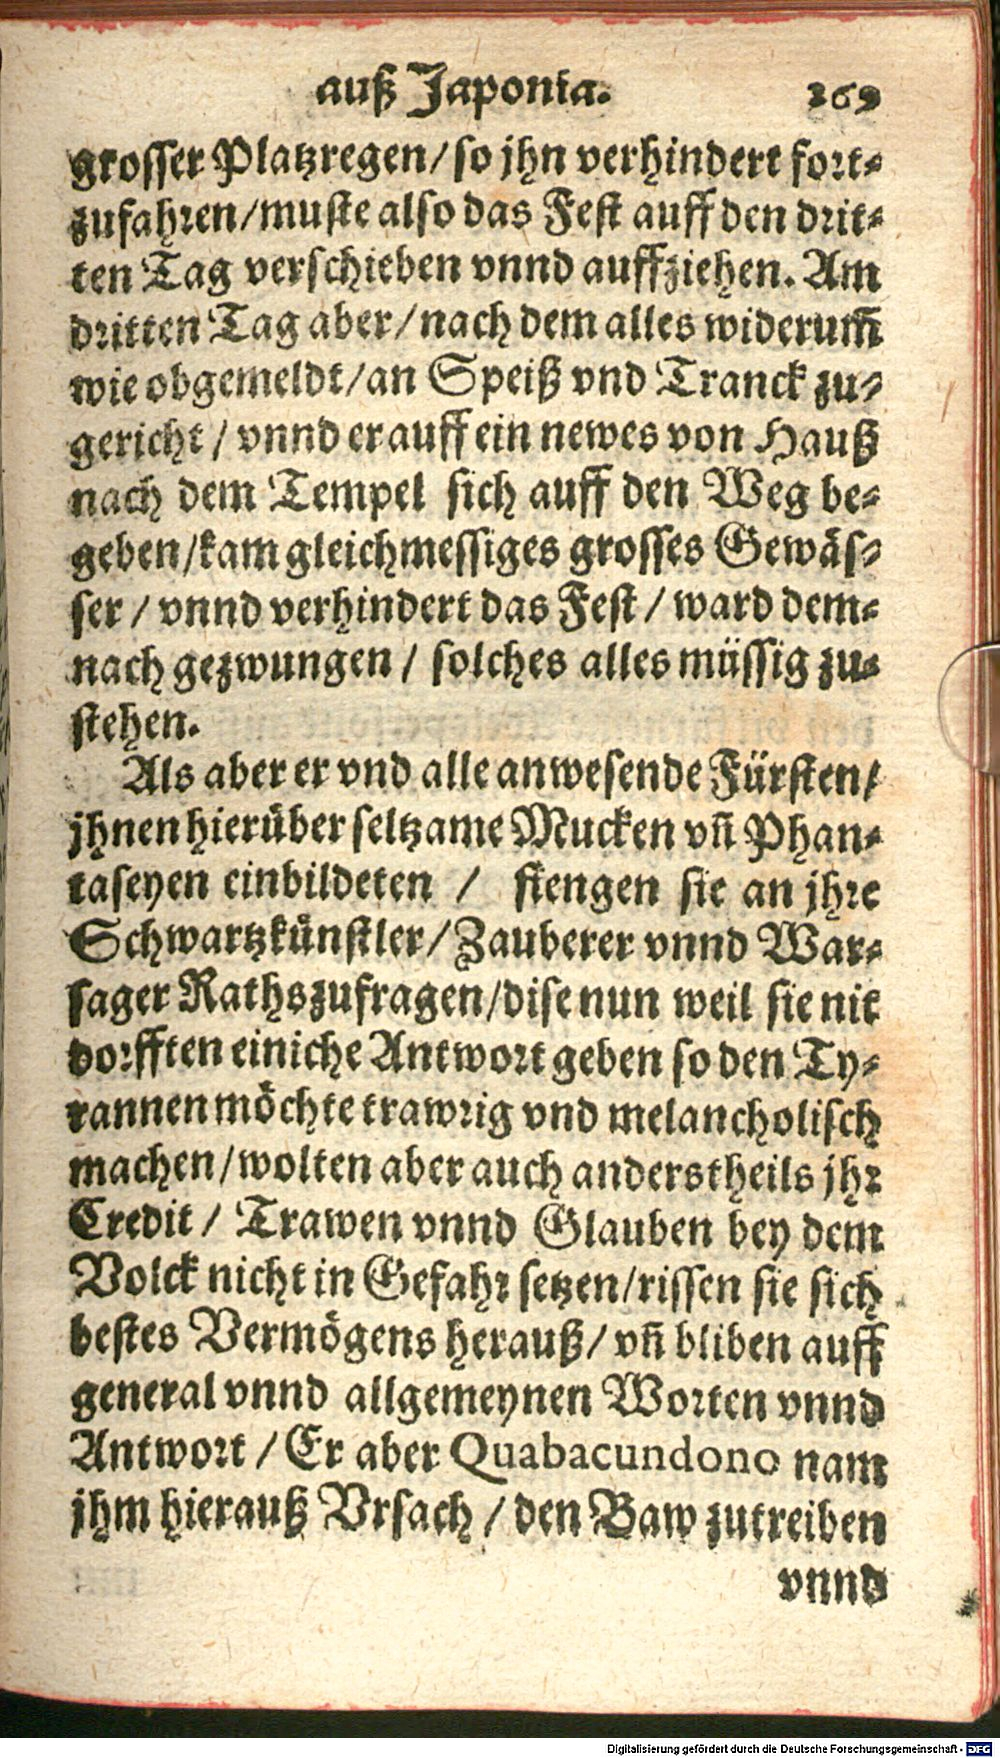 auß Japonia. 269
grosser Platzregen/ so jhn verhindert fort-
zufahren/ muste also das Fest auff den drit-
ten Tag verschieben vnnd auffziehen. Am
dritten Tag aber/ nach dem alles widerum̃
wie obgemeldt/ an Speiß vnd Tranck zu-
gericht / vnnd er auff ein newes von Hauß
nach dem Tempel sich auff den Weg be-
geben/ kam gleichmessiges grosses Gewäs-
ser / vnnd verhindert das Fest / ward dem-
nach gezwungen / solches alles müssig zu-
stehen.
Als aber er vnd alle anwesende Fürsten/
jhnen hierüber seltzame Mucken vñ Phan-
taseyen einbildeten / fiengen sie an jhre
Schwartzkünstler/ Zauberer vnnd War-
sager Raths zufragen/ dise nun weil sie nit
dorfften einiche Antwort geben so den Ty-
rannen möchte trawrig vnd melancholisch
machen/ wolten aber auch anderstheils jhr
Credit / Trawen vnnd Glauben bey dem
Volck nicht in Gefahr setzen/ rissen sie sich
bestes Vermögens herauß/ vñ bliben auff
general vnnd allgemeynen Worten vnnd
Antwort / Er aber Quabacundono nam
jhm hierauß Vrsach / den Baw zutreiben
vnnd
Digitalisierung gefördert durch die Deutsche Forschungsgemeinschaft - DFG